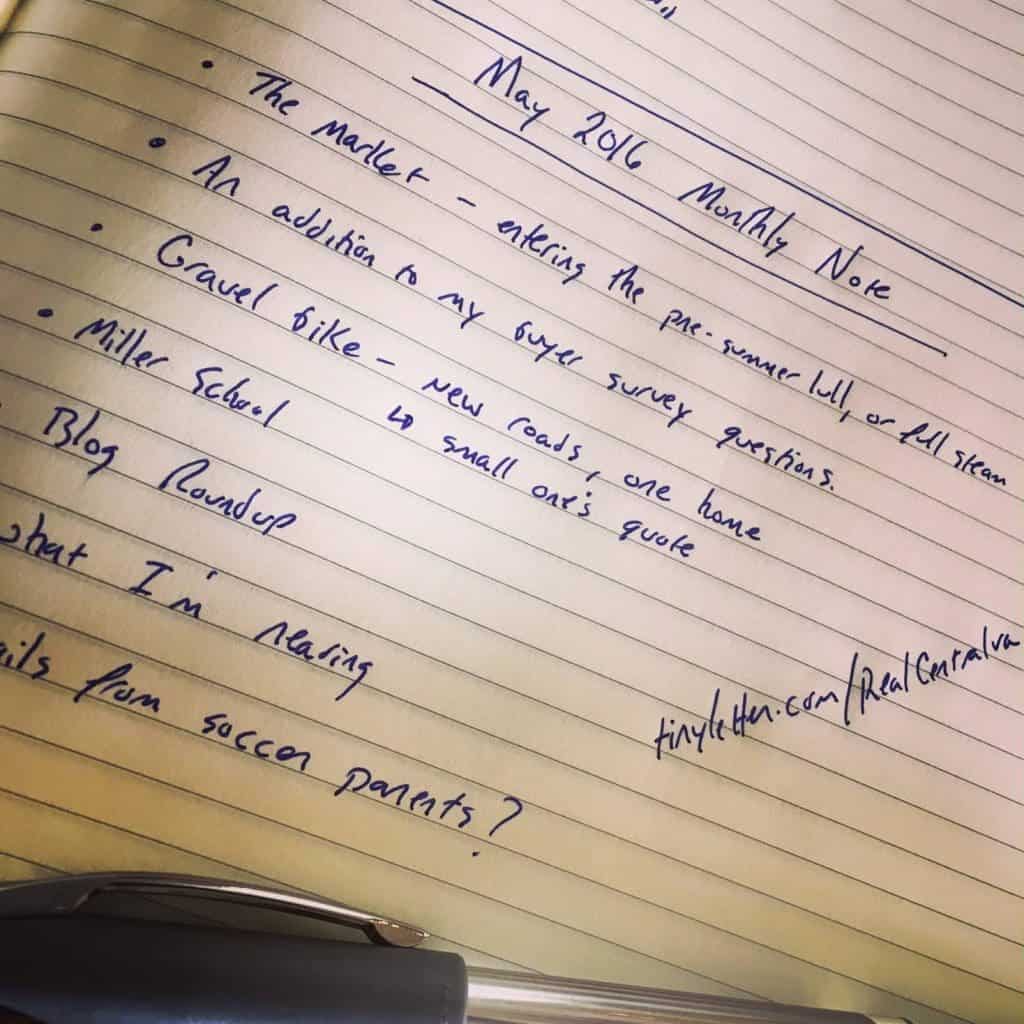 May 2016 Monthly Note
• The Market - entering the pre-summer lull, or full steam
• An addition to my buyer survey questions.
• Gravel bike - new roads, one home
↳ small one's quote
• Miller School
• Blog Roundup
what I'm reading
ails from soccer parents?
tinyletter.com/RealCentralva